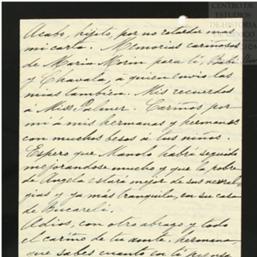 Acabo, hijito, por no retardar mas
mi carta. Memorias cariñosas
de Maria Morin para ti, Bebé
y Chavala, á quien envio las
mias tambien. Mis recuerdos
á Miss Palmer. Cariños por
mi á mis hermanas y hermanos
con muchos besos á los niños.
Espero que Manolo habrá seguido
mejorandose mucho y que la pobre
de Angela estará mejor de sus neural-
gias y ya más tranquila, en su casa
de Bucareli.
Adios, con otro abrazo y todo
el cariño de tu amte. hermana,
que sabes cuanto en la